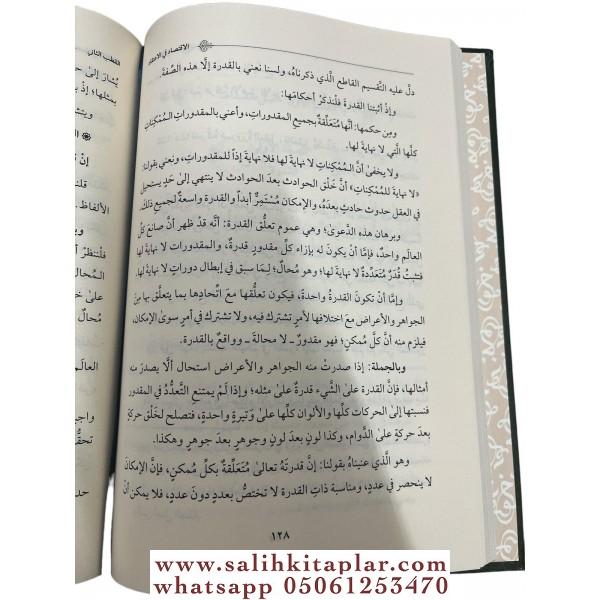 الاقتصاد في الاعتقاد
دلَّ عليه التَّقسيم القاطع الَّذي ذكرناهُ، ولسنا نعني بالقدرة إلَّا هذه الصِّفةَ.
وإذْ أثبتنا القدرةَ فلْنذكرْ أحكامَها:
ومِن حكمها: أنَّها مُتَعَلِّقةٌ بجميعِ المقدوراتِ، وأعني بالمقدوراتِ المُمْكِناتِ
كلَّها الَّتي لا نهايةَ لها.
ولا يخفىٰ أنَّ المُمْكِناتِ لا نهايةَ لها فلا نهايةَ إذاً للمقدوراتِ، ونعني بقولنا:
«لا نهايةَ للمُمْكِناتِ» أنَّ خَلْقَ الحوادثِ بعدَ الحوادثِ لا ينتهي إلىٰ حَدٍ يستحيل
في العقل حدوث حادثٍ بعدَهُ، والإمكان مُسْتَمِرٌّ أبداً والقدرة واسعةٌ لجميع ذلك.
وبرهان هذه الدَّعوىٰ؛ وهي عموم تعلُّق القدرة: أنَّه قدْ ظهر أنَّ صانعَ كلِّ
العالَم واحدٌ، فإمَّا أنْ يكونَ له بإزاء كلِّ مقدورٍ قدرةٌ، والمقدورات لا نهايةَ لها؛
فتثبتُ قُدَرٌ مُتعدِّدةٌ لا نهايةَ لها؛ وهو مُحالٌ؛ لِـمَا سبق في إبطال دوراتٍ لا نهايةَ لها.
وإمَّا أنْ تكونَ القدرة واحدةً، فيكون تعلُّقها معَ اتِّحادِها بما يتعلَّق بها من
الجواهر والأعراض معَ اختلافها لأمرٍ تشترك فيه، ولا تشترك في أمرٍ سوىٰ الإمكان،
فيلزم منه أنَّ كلَّ ممكنٍ؛ فهو مقدورٌ ـ لا محالةَ ـ وواقعٌ بالقدرة.
وبالجملة: إذا صدرتْ منه الجواهر والأعراض استحال ألَّا يصدرَ منه
أمثالها، فإنَّ القدرة علىٰ الشَّيء قدرةٌ علىٰ مثله؛ وإذا لَمْ يمتنعِ التَّعدُّدُ في المقدور
فنسبتها إلىٰ الحركات كلِّها والألوان كلِّها علىٰ وَتيرةٍ واحدةٍ، فتصلح لخَلْق حركةٍ
بعدَ حركةٍ علىٰ الدَّوام، وكذا لونٍ بعدَ لونٍ وجوهرٍ بعدَ جوهرٍ وهكذا.
وهو الَّذي عنيناهُ بقولنا: إنَّ قدرتَه تعالىٰ مُتَعَلِّقةٌ بكلِّ ممكنٍ، فإنَّ الإمكانَ
لا ينحصر في عددٍ، ومناسبة ذاتِ القدرة لا تختصُّ بعددٍ دونَ عددٍ، فلا يمكن أنْ
١٢٨
القطب الثاني
يُشارَ إلىٰ
بمثلها؛
www.salihkitaplar.com
whatsapp 05061253470